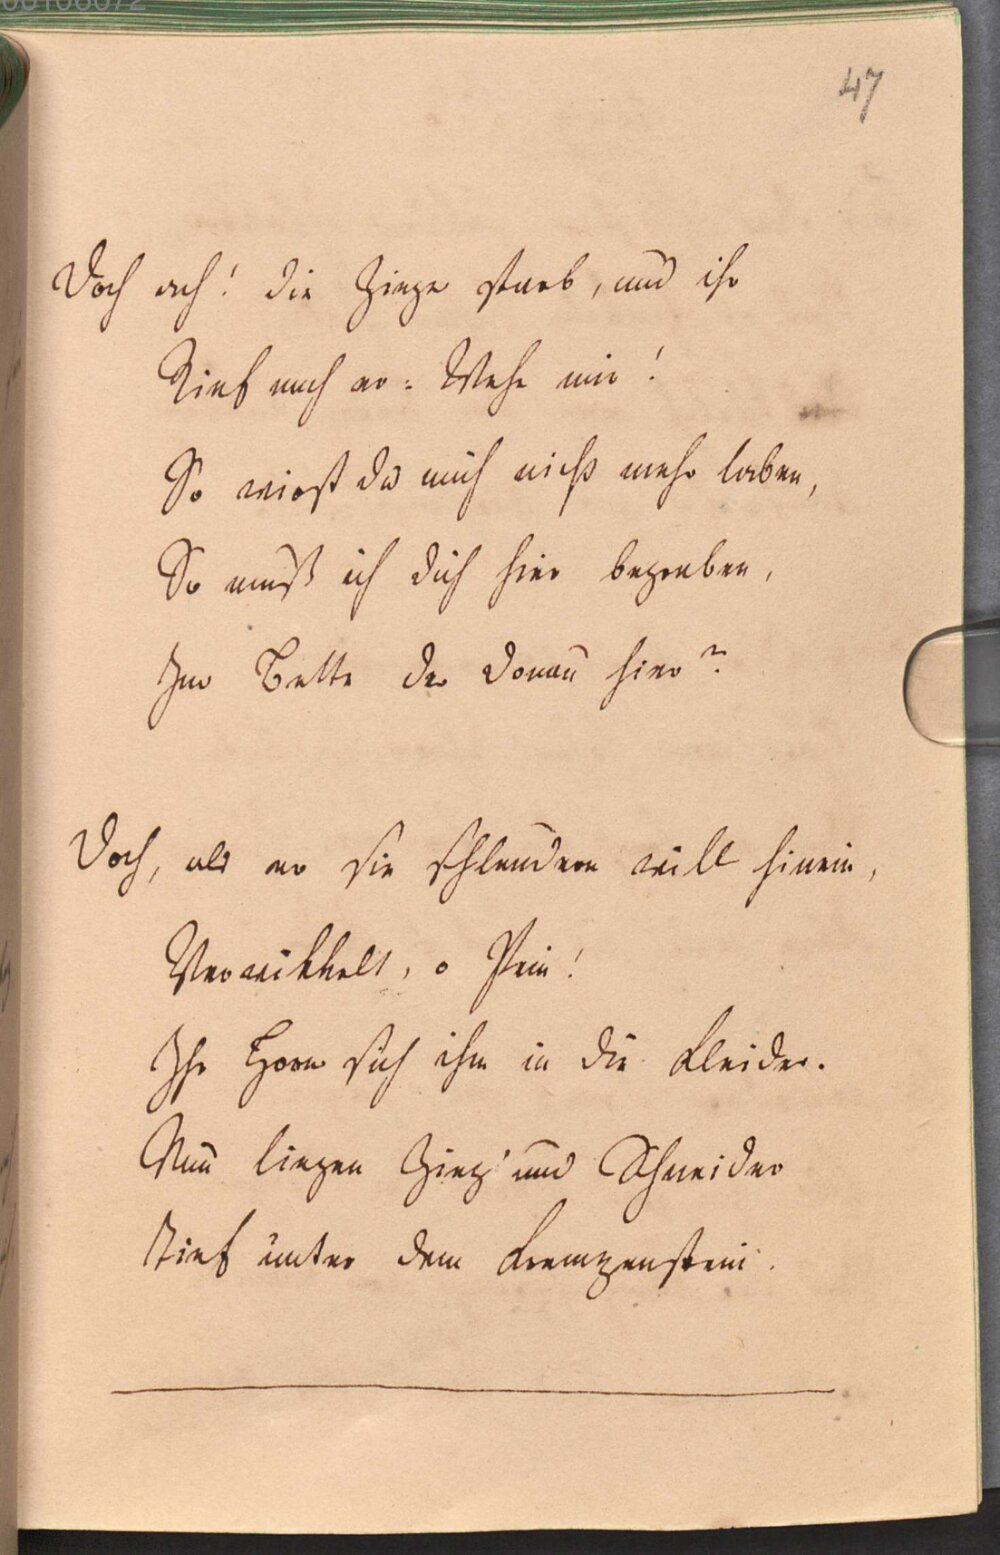 00106072
47
Doch ach! die Ziege starb, und ihr
Rief nach er: Wehe mir!
So wirst du mich nicht mehr laben,
So muß ich dich hier begraben,
Im Bette der Donau hier?
Doch, als er sie schleudern will hinein,
Verwikkelt, o Pein!
Ihr Horn sich ihm in die Kleider.
Nun liegen Zieg' und Schneider
Tief unter dem Krempenstein.